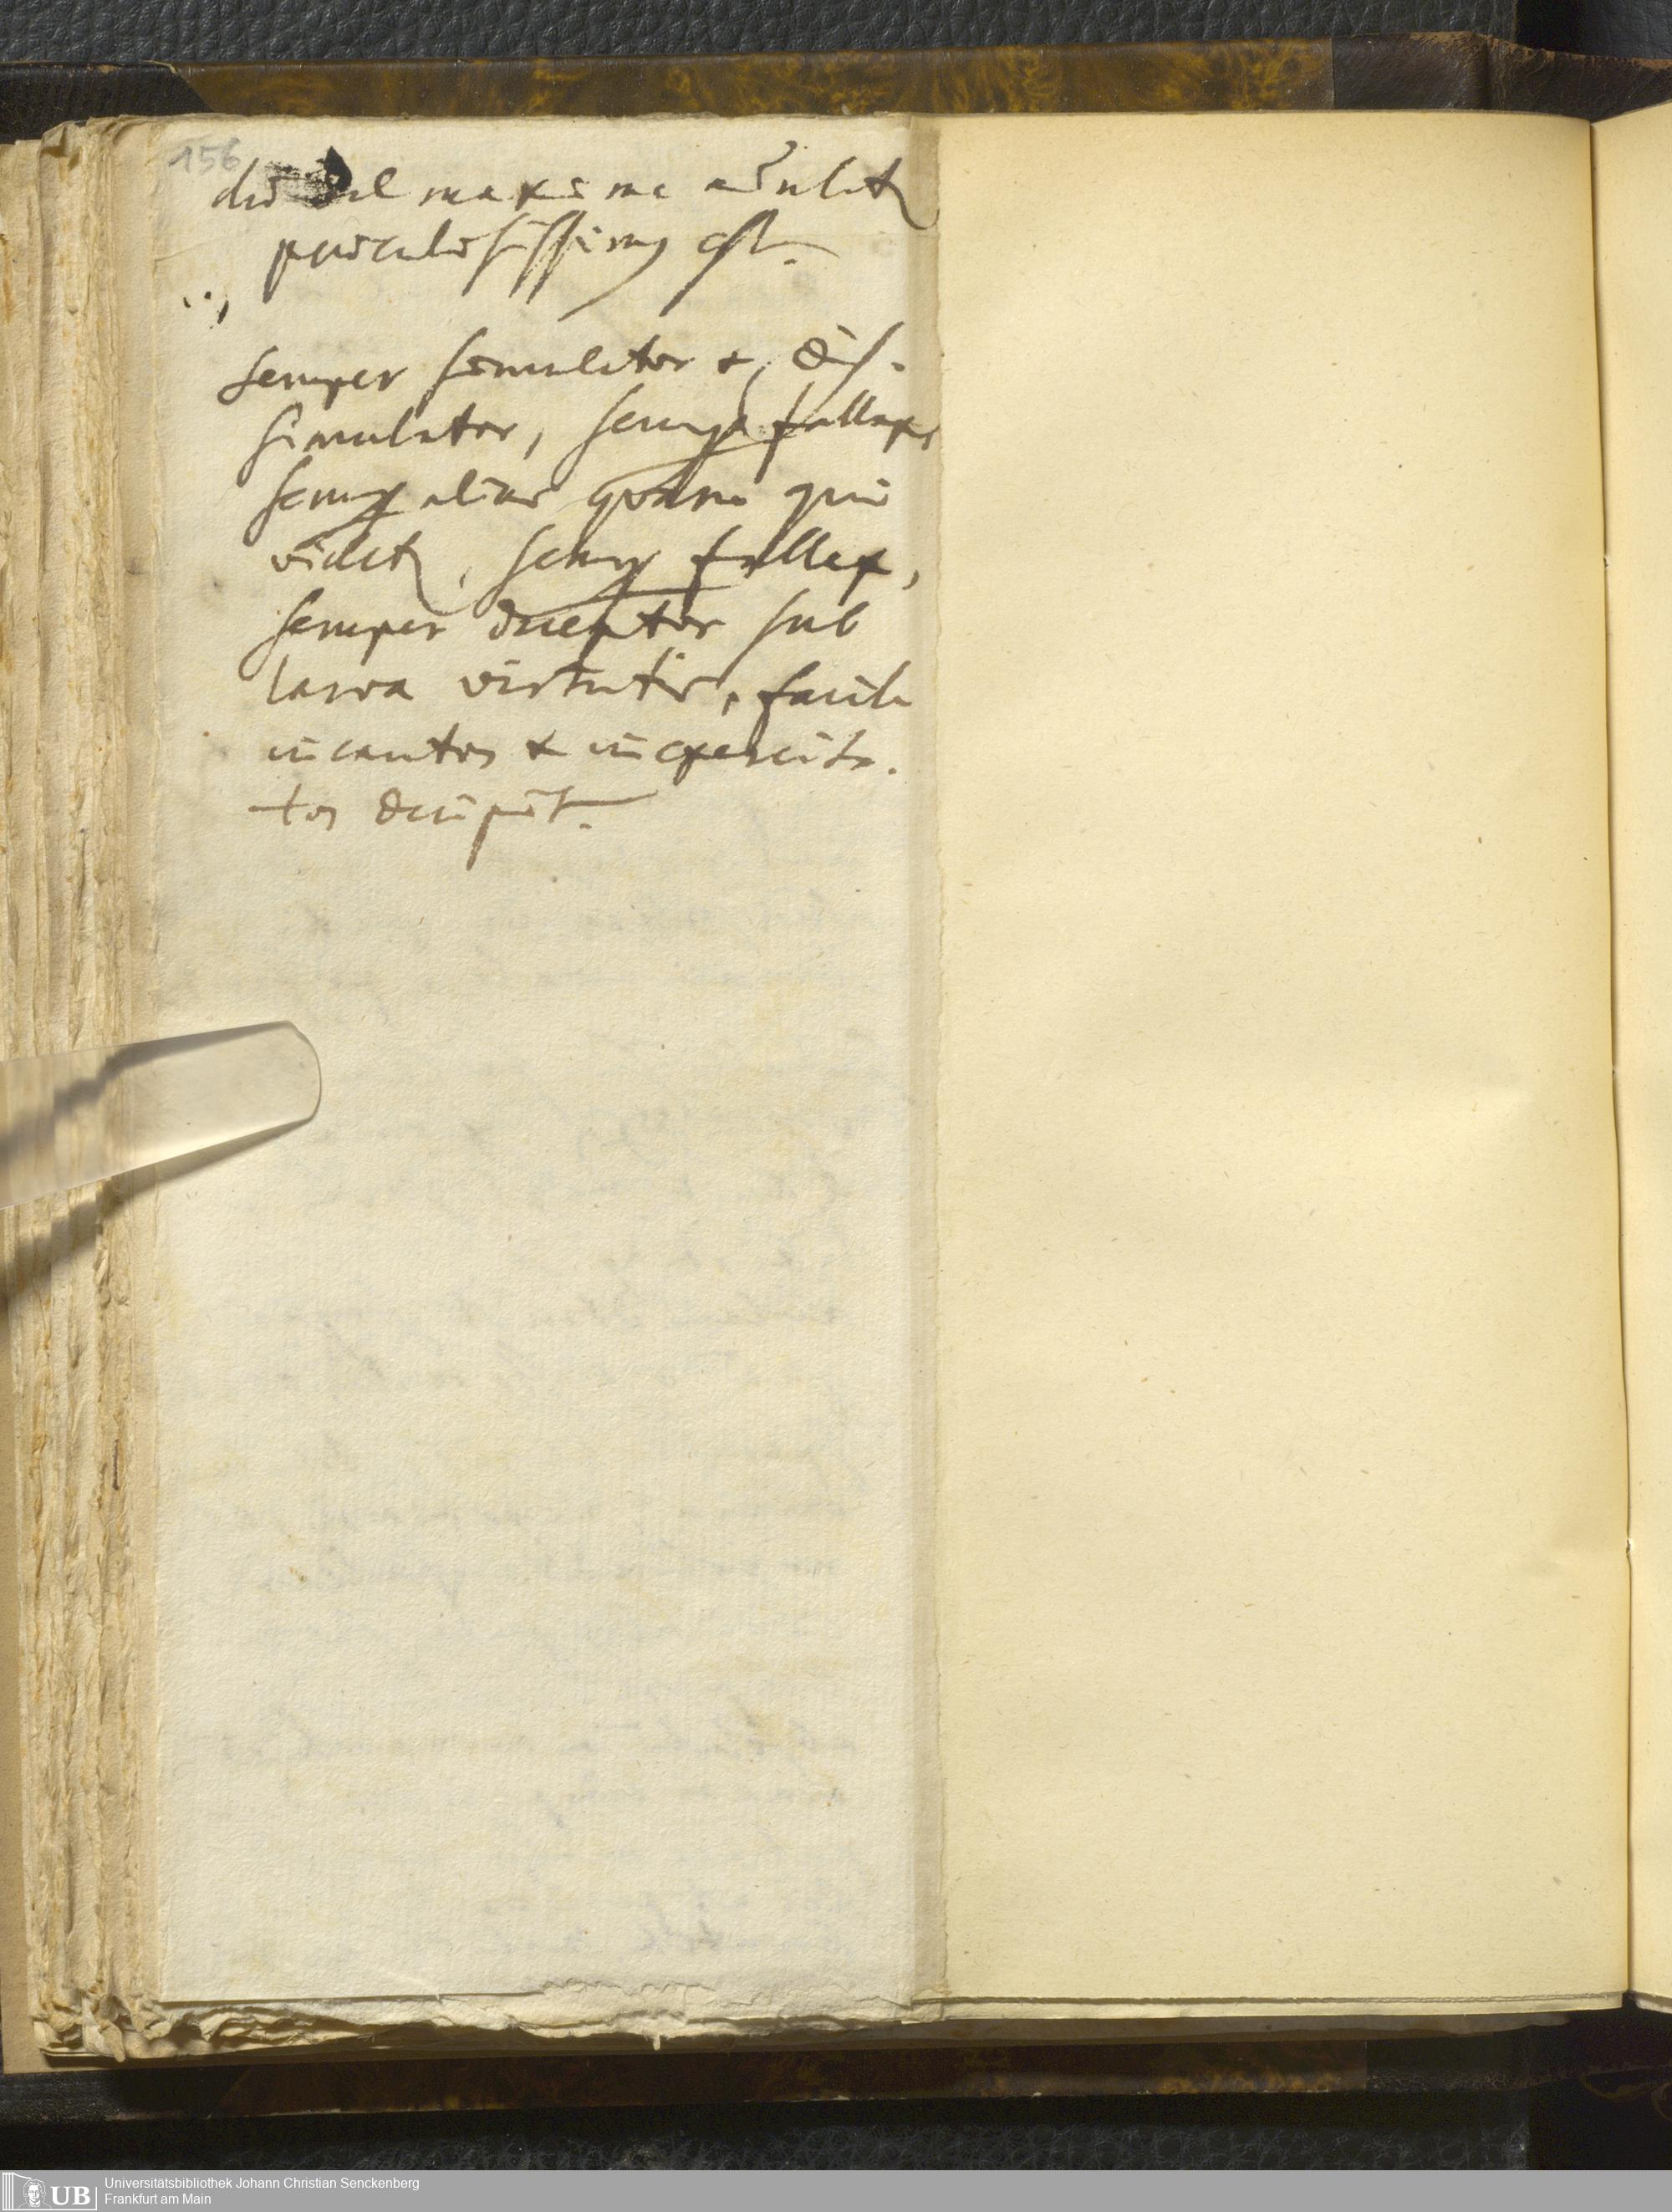 156
vel maxime adulat
periculosissimus est.
semper simulator & dis-
simulator, semper fallax,
semper alius quam qui
videt, semper fallax,
semper deceptor sub
larva virtutis, facile
incautos & inexercita-
tos decipit.
UB Universitätsbibliothek Johann Christian Senckenberg
Frankfurt am Main